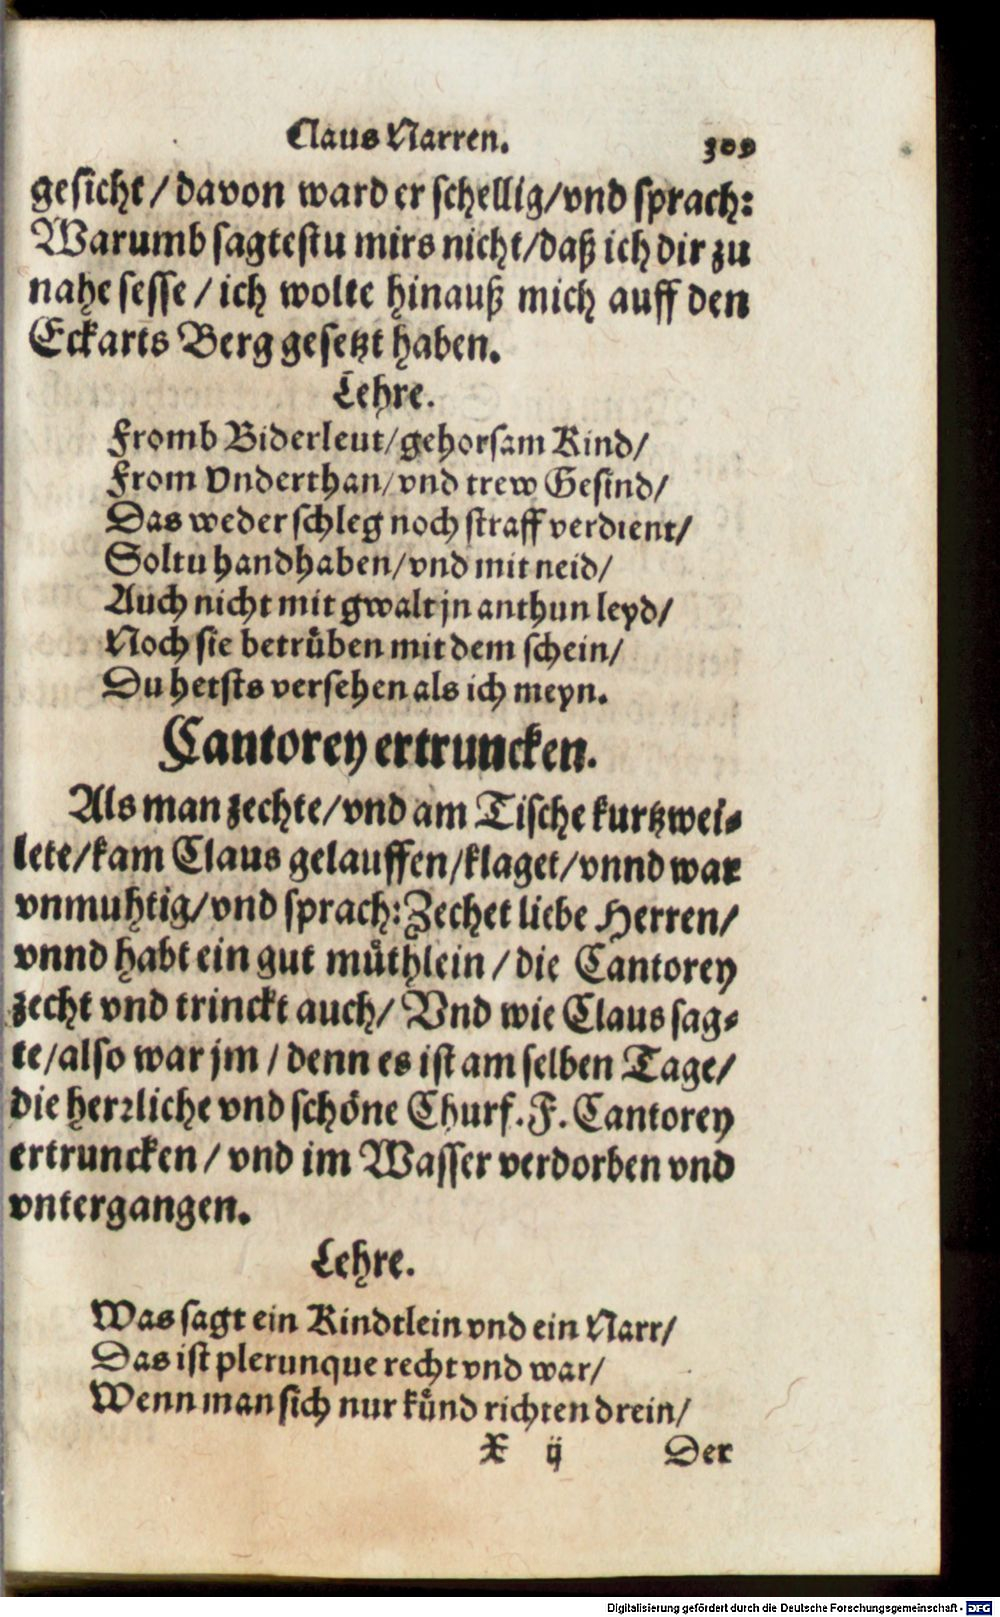 Claus Narren. 309
gesicht / davon ward er schellig / vnd sprach:
Warumb sagtestu mirs nicht / daß ich dir zu
nahe sesse / ich wolte hinauß mich auff den
Eckarts Berg gesetzt haben.
Lehre.
Fromb Biderleut / gehorsam Kind /
From Vnderthan / vnd trew Gesind /
Das weder schleg noch straff verdient /
Soltu handhaben / vnd mit neid /
Auch nicht mit gwalt jn anthun leyd /
Noch sie betrüben mit dem schein /
Du hetsts versehen als ich meyn.
Cantorey ertruncken.
Als man zechte / vnd am Tische kurtzwei-
lete / kam Claus gelauffen / klaget / vnnd war
vnmuhtig / vnd sprach: Zechet liebe Herren /
vnnd habt ein gut müthlein / die Cantorey
zecht vnd trinckt auch / Vnd wie Claus sag-
te / also war jm / denn es ist am selben Tage /
die herrliche vnd schöne Churf. F. Cantorey
ertruncken / vnd im Wasser verdorben vnd
vntergangen.
Lehre.
Was sagt ein Kindtlein vnd ein Narr /
Das ist plerunque recht vnd war /
Wenn man sich nur künd richten drein /
X ij Der
Digitalisierung gefördert durch die Deutsche Forschungsgemeinschaft - DFG